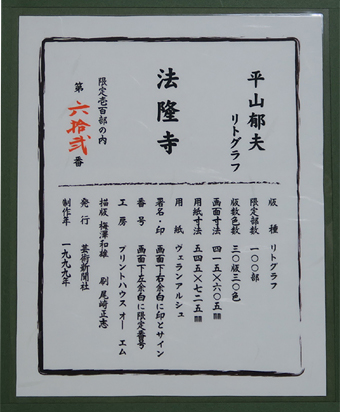 平山郁夫
リトグラフ
法隆寺
限定壱百部の内
第 六拾弐 番
版種 リトグラフ
限定部数 一〇〇部
版数色数 三〇版三〇色
画面寸法 四一五×六〇五㎜
用紙寸法 五四五×七二五㎜
用紙 ヴェランアルシュ
署名・印 画面下右余白に印とサイン
番号 画面下左余白に限定番号
工房 プリントハウス オー エム
描版 梅澤和雄 刷 尾崎正志
発行 芸術新聞社
制作年 一九九九年